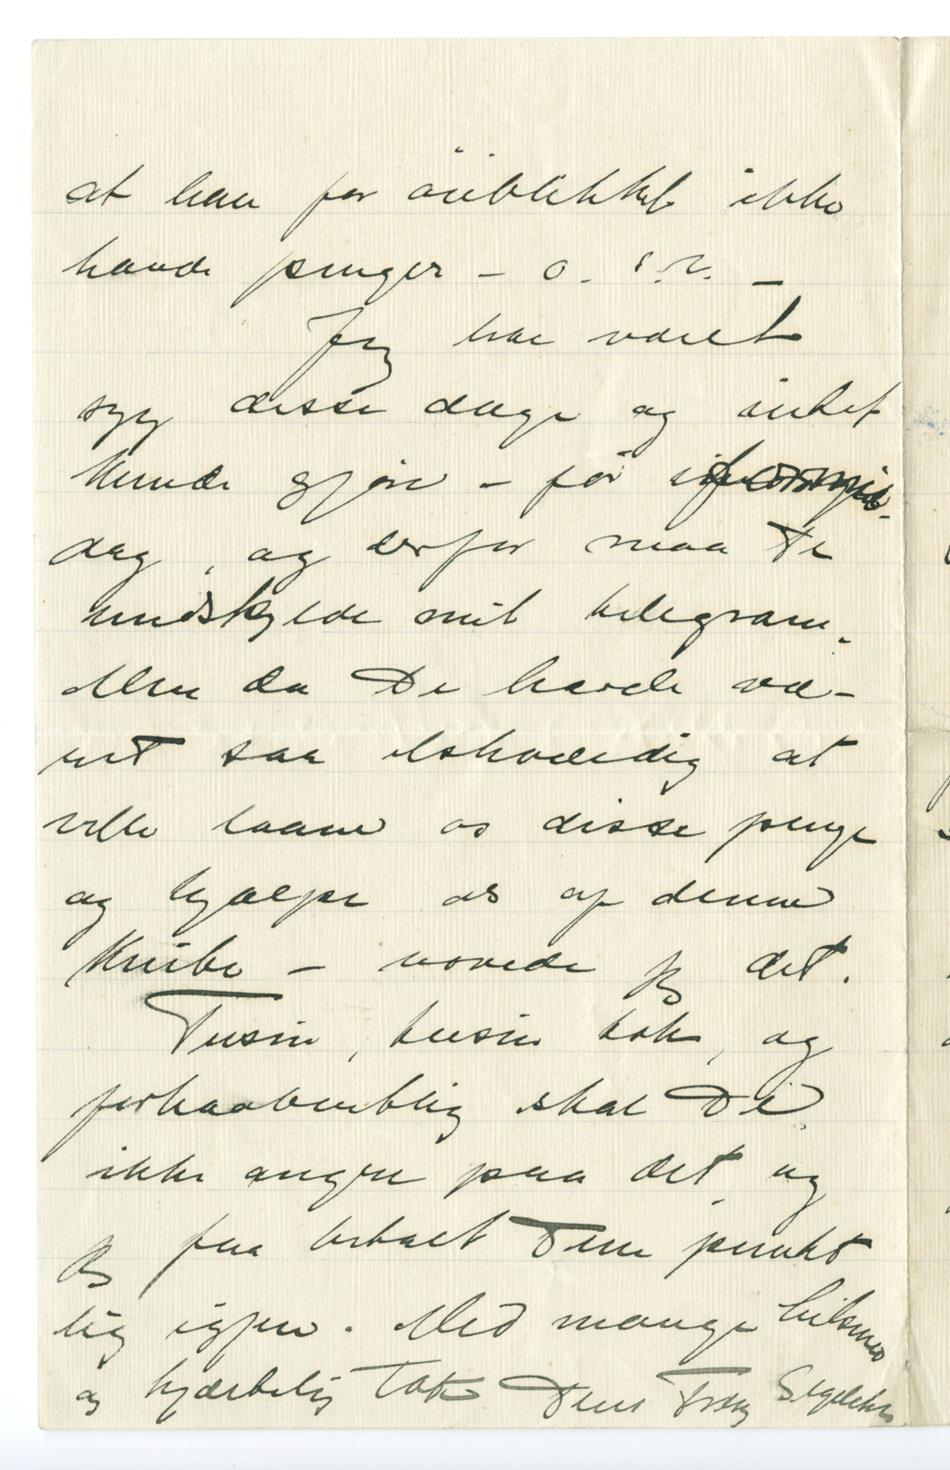 at han for öieblikket ikke
havde penger - o. s. v. -
Jeg har været
syg disse dage og intet
kunde gjöre - för i
dag, og derfor maa De
undskylde mit telegram.
Men da De havde væ-
ret saa elskværdig at
ville laane os disse penge
og hjælpe os af denne
Knibe - vovede jeg det.
Tusin, tusin tak, og
forhaabentlig skal De
ikke angre paa det, og
jeg faa betalt Dem punkt
lig igjen. Med mange hilsner
og hjærtelig Tak Deres